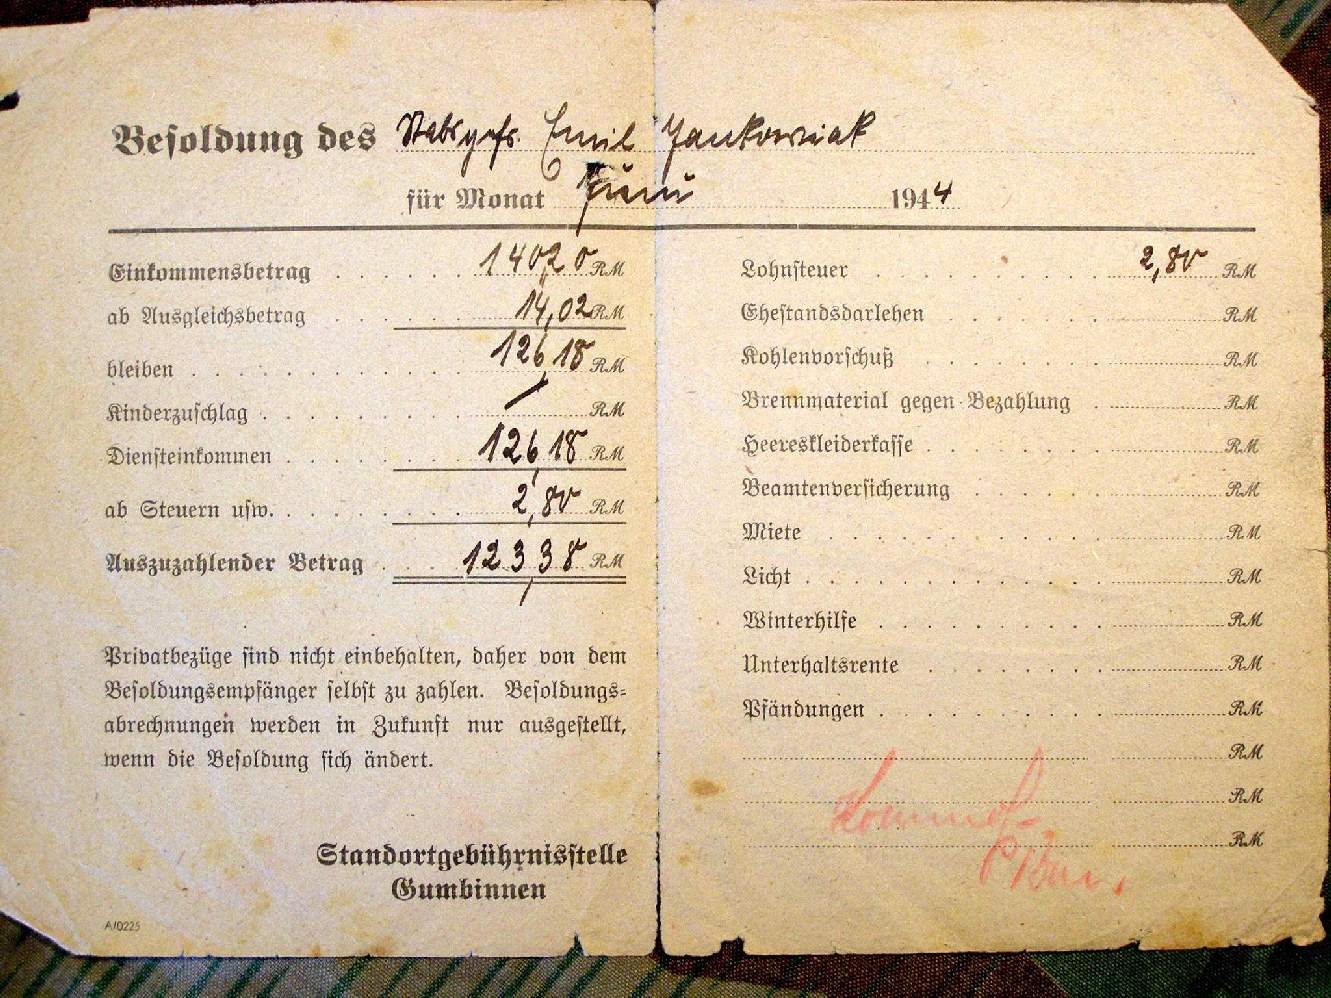 Besoldung des Stabsgefr. Emil Jankowiak
für Monat Juni 1944
Einkommensbetrag 140,20 RM
ab Ausgleichsbetrag 14,02 RM
bleiben 126,18 RM
Kinderzuschlag / RM
Diensteinkommen 126,18 RM
ab Steuern usw. 2,80 RM
Auszuzahlender Betrag 123,38 RM
Privatbezüge sind nicht einbehalten, daher von dem
Besoldungsempfänger selbst zu zahlen. Besoldungs-
abrechnungen werden in Zukunft nur ausgestellt,
wenn die Besoldung sich ändert.
Standortgebührnisstelle
Gumbinnen
A/0225
Lohnsteuer 2,80 RM
Ehestandsdarlehen RM
Kohlenvorschuß RM
Brennmaterial gegen Bezahlung RM
Heereskleiderkasse RM
Beamtenversicherung RM
Miete RM
Licht RM
Winterhilfe RM
Unterhaltsrente RM
Pfändungen RM
RM
RM
RM